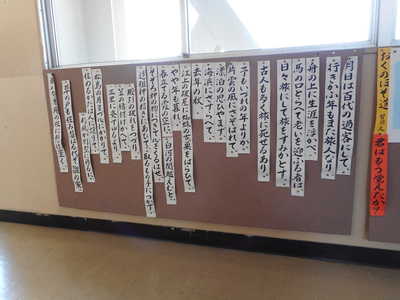 おくのほそ道
君はもう覚えたか?
月日は百代の過客にして、
行きかふ年もまた旅人なり
舟の上に生涯を浮かべ、
馬の口とらへて老いを迎ふる者は、
日々旅にして旅をすみかとす。
古人も多く旅に死せるあり。
予もいづれの年よりか、
片雲の風にさそはれて、
漂泊の思ひやまず、
海浜にさすらへ、
去年の秋、
江上の破屋に蜘蛛の古巣をはらひて、
やや年も暮れ、
春立てる霞の空に白河の関越えむと、
そぞろ神の物につきて心をくるはせ、
道祖神の招きにあひて、取るもの手につかず、
股引の破れをつづり、
笠の緒付けかへて、